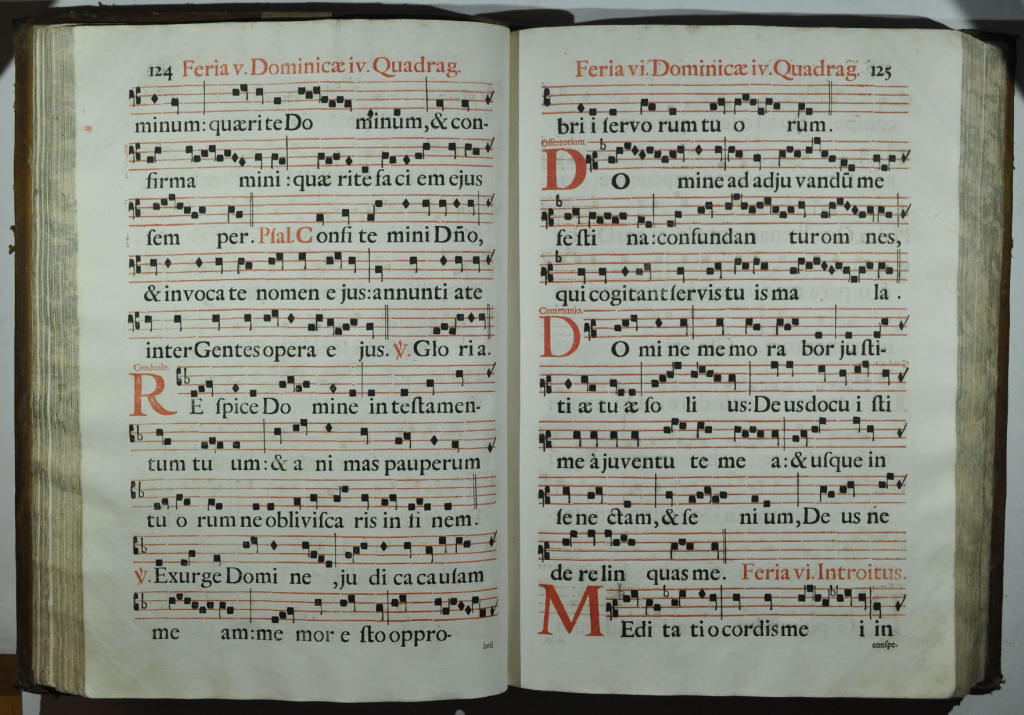 124 Feria v. Dominicæ iv. Quadrag.
minum: quæ ri te Do minum, & con-
firma mini : quæ rite fa ci em ejus
ſem per. Pſal. C onfi te mini Dño,
& invoca te nomen e jus: annunti ate
inter Gentes opera e jus. ℣. Glo ri a.
Graduale.
R E ſpice Do mine in teſtamen-
tum tu um: & a ni mas pauperum
tu o rum ne obliviſca ris in fi nem.
℣. Exurge Domi ne , ju di ca cauſam
me am: me mor e ſto oppro-
brii
Feria vi. Dominicæ iv. Quadrag. 125
bri i ſervo rum tu o rum.
Offertorium.
D O mine ad adju vandū me
fe ſti na: confundan tur om nes,
qui cogitant ſervis tu is ma la .
Communio.
D O mi ne me mo ra bor ju ſti-
ti æ tu æ ſo li us: Deus docu i ſti
me à juventu te me a: & uſque in
ſene ctam, & ſe ni um, De us ne
de re lin quas me. Feria vi. Introitus.
M Edi ta ti o cordis me i in
conſpe-